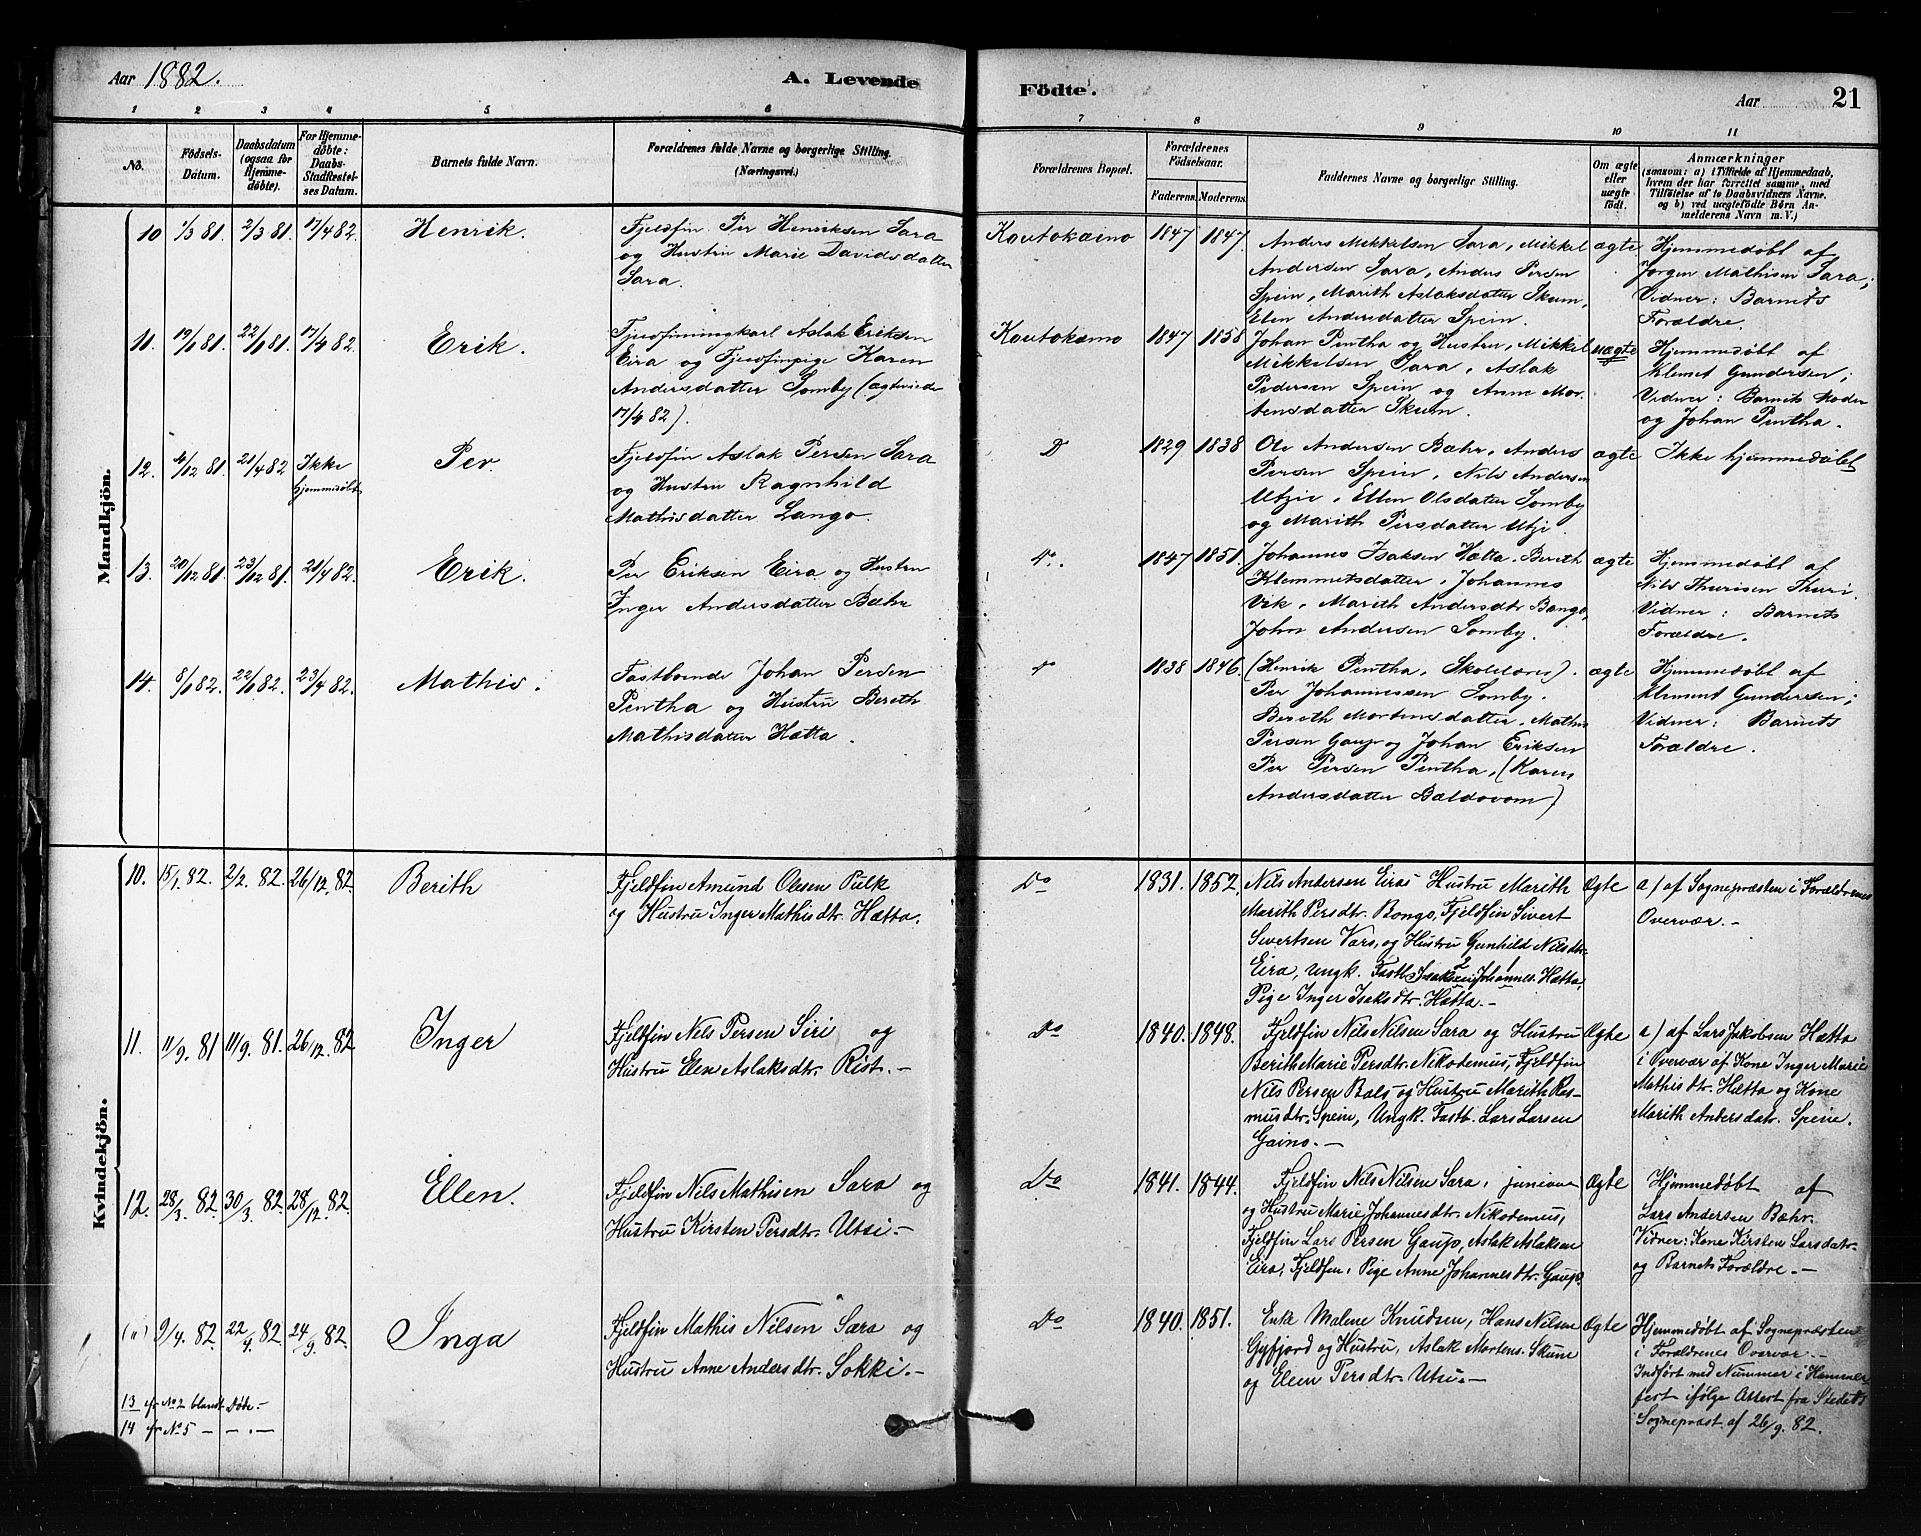 Aar 1882.
A. Levende Födte.
Aar 21
1 2 3 4 5 6 7 8 9 10 11
No.
Födsels-Datum.
Daabsdatum (ogsaa for Hjemmedöbte).
For Hjemmedöbte: Daabs-Stadfæstelses Datum.
Barnets fulde Navn.
Forældrenes fulde Navne og borgerlige Stilling. (Næringsvei.)
Forældrenes Bopæl.
Forældrenes Födselsaar.
Faderens. Moderens.
Faddernes Navne og borgerlige Stilling.
Om ægte eller uægte födt.
Anmærkninger
(saasom: a) i Tilfælde af Hjemmedaab, hvem der har forrettet samme, med Tilföielse af to Daabsvidners Navne. og b) ved uægtefödte Börn Anmelderens Navn m. V.)
Mandkjön.
10 1/3 81. 2/3 81. 17/4 82. Henrik.
Fjeldfin Per Henriksen Sara
og Hustru Marie Davidsdatter
Sara.
Kautokæino 1847 1847.
Anders Mikkelsen Sara, Mikkel
Andersen Sara, Anders Persen
Spein, Marith Aslaksdatter Skum,
Elen Andersdatter Spein.
ægte
Hjemmedøbt af
Jørgen Mathisen Sara;
Vidner: Barnets
Forældre.
11. 19/1 81. 22/1 81. 17/4 82. Erik.
Fjeldfinungkarl Aslak Eriksen
Eira og Fjeldfinpige Karen
Andersdatter Somby (ægteviede
17/4 82).
Kautokæino 1847 1858
Johan Pentha og Hustru, Mikkel
Mikkelsen Sara, Aslak
Pedersen Spein og Anne Mor-
tensdatter Skum.
uægte
Hjemmedøbt af
Klemet Gundersen;
Vidner: Barnets Moder
og Johan Pentha.
12. 4/12 81. 21/4 82 Ikke hjemmedøbt Per.
Fjeldfin Aslak Persen Sara
og Hustru Ragnhild
Mathisdatter Lango.
D 1829 1838
Ole Andersen Bæhr, Anders
Persen Spein, Nils Andersen
Utzie, Ellen Olsdatter Somby
og Marith Persdatter Utzi
ægte
Ikke hjemmedøbt
13. 20/12 81. 23/12 81. 21/4 82. Erik.
Per Eriksen Eira og Hustru
Inger Andersdatter Bæhr
Do. 1847 1851.
Johannes Isaksen Hætta. Bereth
Klemmetsdatter, Johannes
Vik, Marith Andersdtr Bongo,
John Andersen Somby.
ægte
Hjemmedøbt af
Nils Thurisen Thuri.
Vidner: Barnets
Forældre.
14. 8/1 82. 22/1 82. 23/4 82. Mathis.
Fastboende Johan Persen
Pentha og Hustru Bereth
Mathisdatter Hætta.
Do 1838 1846.
(Henrik Pentha, Skolelærer).
Per Johannessen Somby.
Bereth Mortensdatter, Mathis
Persen Gaup og Johan Eriksen
Per Persen Pentha, (Karen
Andersdatter Bældovom)
ægte
Hjemmedøbt af
Klemet Gundersen;
Vidner: Barnets
Forældre.
Kvindekjön.
10. 15/1. 82. 2/2. 82. 26/12. 82. Berith
Fjeldfin Amund Olesen Pulk
og Hustru Inger Mathisdtr. Hætta.
Do 1831. 1852.
Nils Andersen Eiras Hustru Marith
Marith Persdtr. Bongo, Fjeldfin Sivert
Sivertsen Vars, og Hustru Gunhild Nilsdtr.
Eira, Ungk. Fastb. Isaksen Johannes Hætta,
Pige Inger Isaksdtr. Hætta.—
Ægte
a) af Sognepræsten i Forældrenes
Overvær.—
11. 11/9. 81 11/9. 81. 26/12. 82 Inger
Fjeldfin Nels Persen Siri og
Hustru Elen Aslaksdtr. Rist.—
Do 1840. 1848.
Fjeldfin Nils Nilsen Sara og Hustru
Berith Marie Persdtr. Nikodemus, Fjeldfin
Nils Persen Bals og Hustru Marith Ras-
musdtr. Spein, Ungk. Fastb. Lars Larsen
Gaino.—
Ægte
a) af Lars Jakobsen Hætta
i Overvær af Kone Inger Marie
Mathisdtr. Hætta og Kone
Marith Andersdatr. Spein.
12. 28/3. 82. 30/3. 82. 28/12. 82. Ellen.
Fjeldfin Nils Mathisen Sara og
Hustru Kirsten Persdtr. Utsi.—
Do 1841. 1844.
Fjeldfin Nils Nilsen Sara, junior
og Hustru Marie Johannesdtr. Nikodemus,
Fjeldfin Lars Persen Gaup, Aslak Aslaksen
Eira, Fjeldfin, Pige Anne Johannesdtr. Gaup.
Ægte
Hjemmedøbt af
Lars Andersen Bæhr.
Vidner: Kone Kirsten Larsdatr.
og Barnets Forældre.—
(") 9/4. 82. 22/4. 82 24/9. 82. Inga
Fjeldfin Mathis Nilsen Sara og
Hustru Anne Andersdtr. Sokki.—
Do 1840. 1851.
Enke Malene Knudsen, Hans Nilsen
Gyfjord og Hustru, Aslak Mortens. Skum
og Elen Persdtr. Utsi.—
Ægte
Hjemmedøbt af Sognepræsten
i Forældrenes Overvær.—
Indført med Nummer i Hammer-
fest ifølge Attest fra Stedets
Sognepræst af 26/9. 82.
13 cfr No 2 blandt Døbe.—
14 cfr No 5 — —.—